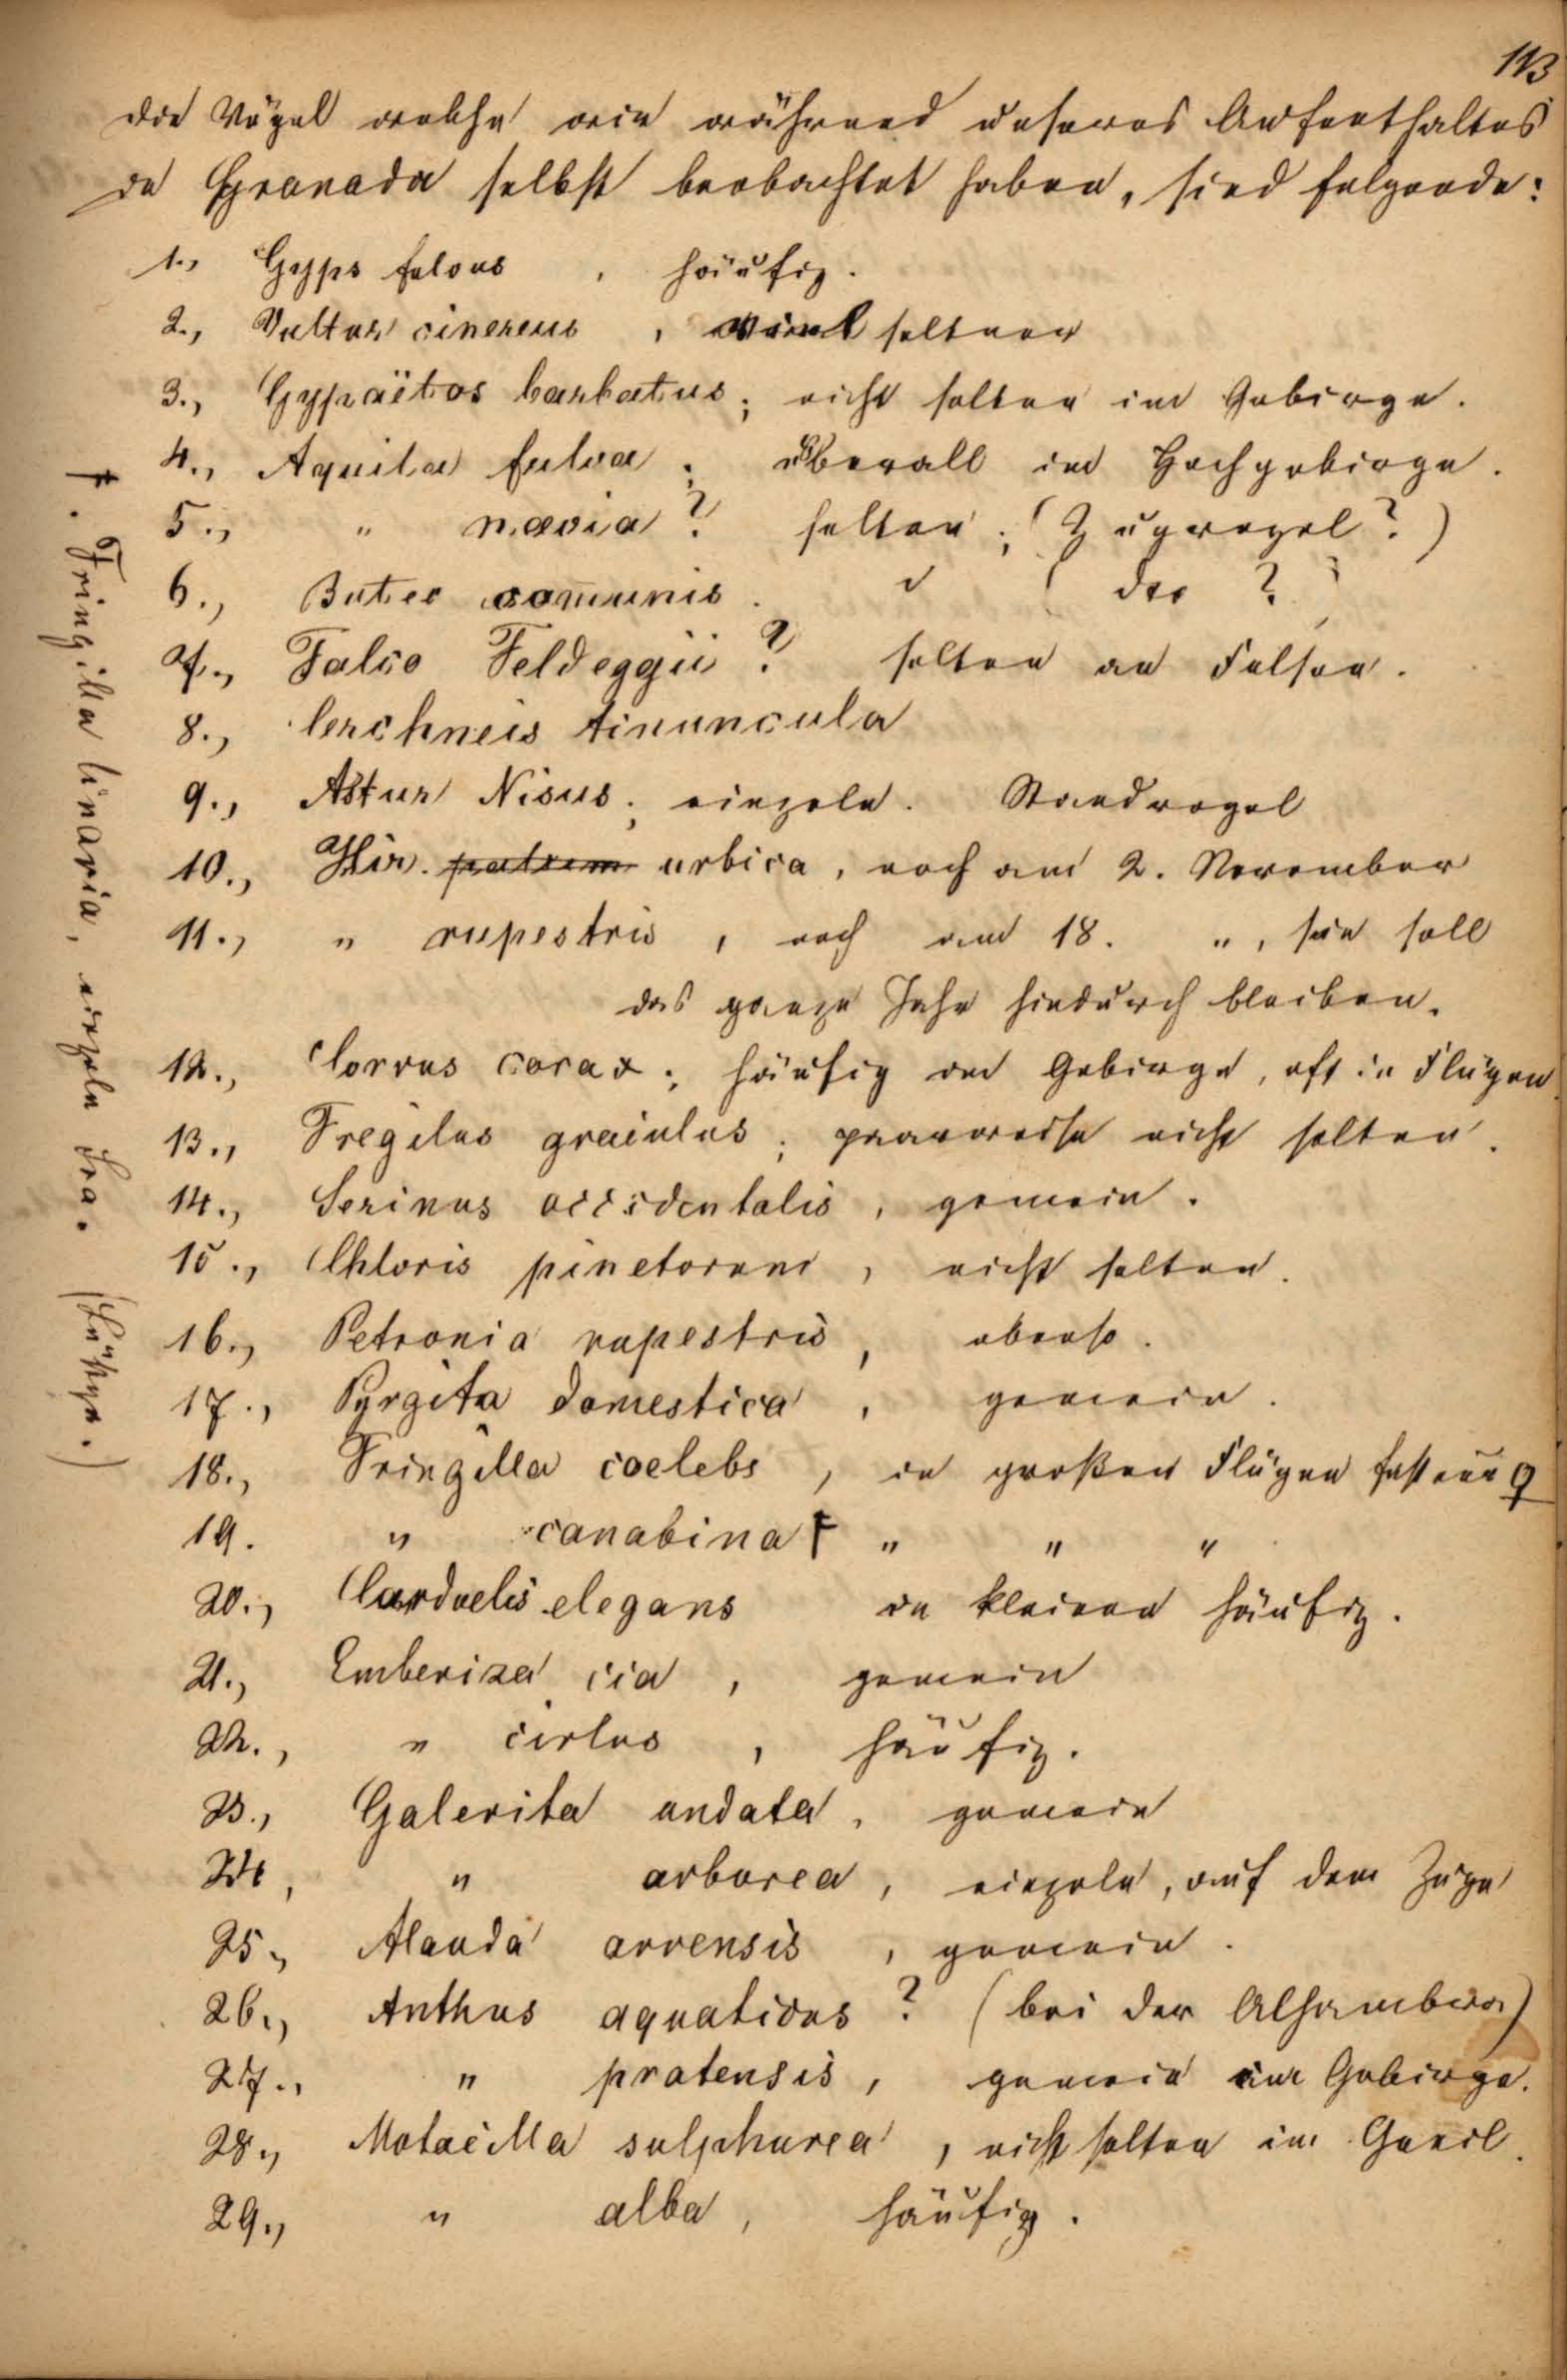 113
Die Vögel welche wir während unseres Aufenthaltes
in Granada selbst beobachtet haben, sind folgende:
1., Gyps fulvus , häufig.
2., Vultur cinereus , viel seltner
3., Gypaëtos barbatus; nicht selten im Gebirge.
4., Aquila fulva; überall im Hochgebirge.
5., " naevia? selten; (Zugvogel?)
6., Buteo com̅unis. " ( dto ? )
7., Falco Feldeggii? selten an Felsen.
8., Cerchneis tinuncula
9., Astur Nisus; einzeln. Standvogel
10., Hir. urbica, noch am 2. November
11., " rupestris , noch am 18. ", sie soll
das ganze Jahr hindurch bleiben.
12., Corvus corax; häufig im Gebirge, oft in Flügen
13., Fregilus graculus; paarweise nicht selten.
14., Serinus occidentalis, gemein.
15., Chloris pinetorum, nicht selten.
16., Petronia rupestris, ebenso.
17., Pyrgita domestica, gemein.
18., Fringilla coelebs, in großen Flügen fast nur ♀
19. " canabina † " " "
20., Carduelis elegans in kleinen häufig.
21., Emberiza cia, gemein
22., " cirlus, häufig.
23., Galerita undata, gemein
24, " arborea, einzeln, auf dem Zuge
25., Alauda arvensis, gemein.
26., Anthus aquaticus? (bei der Alhambra)
27., " pratensis, gemein im Gebirge.
28., Motacilla sulphurea, nicht selten im Genil.
29., " alba, häufig.
†. Fringilla linaria, einzeln